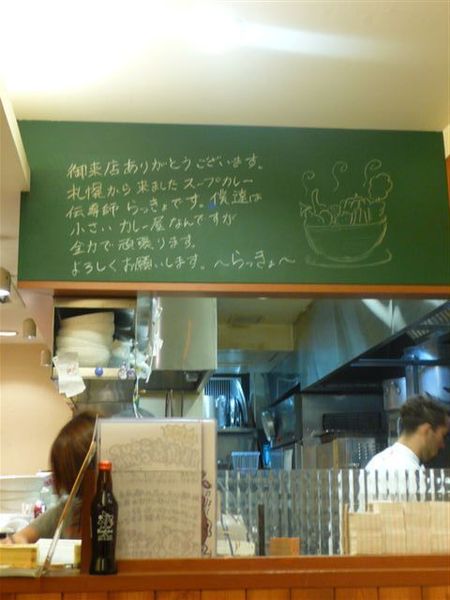 御来店ありがとうございます。
札幌から来ました スープカレー
伝導師 らっきょです。僕達は
小さい カレー屋なんですが
全力で頑張ります。
よろしくお願いします。～らっきょ～